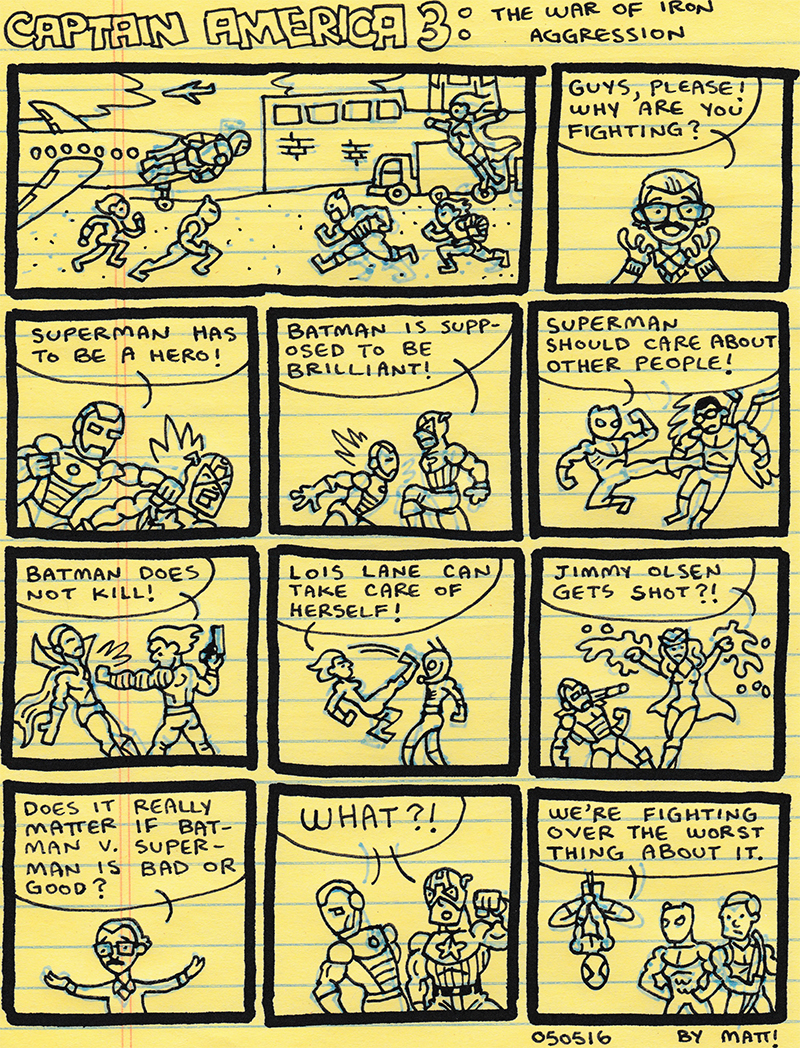 CAPTAIN AMERICA 3:
THE WAR OF IRON
AGGRESSION
GUYS, PLEASE!
WHY ARE YOU
FIGHTING?
SUPERMAN HAS
TO BE A HERO!
BATMAN IS SUPP-
OSED TO BE
BRILLIANT!
SUPERMAN
SHOULD CARE ABOUT
OTHER PEOPLE!
BATMAN DOES
NOT KILL!
LOIS LANE CAN
TAKE CARE OF
HERSELF!
JIMMY OLSEN
GETS SHOT?!
DOES IT REALLY
MATTER IF BAT-
MAN V. SUPER-
MAN IS BAD OR
GOOD?
WHAT?!
WE'RE FIGHTING
OVER THE WORST
THING ABOUT IT.
050516 BY MATT!